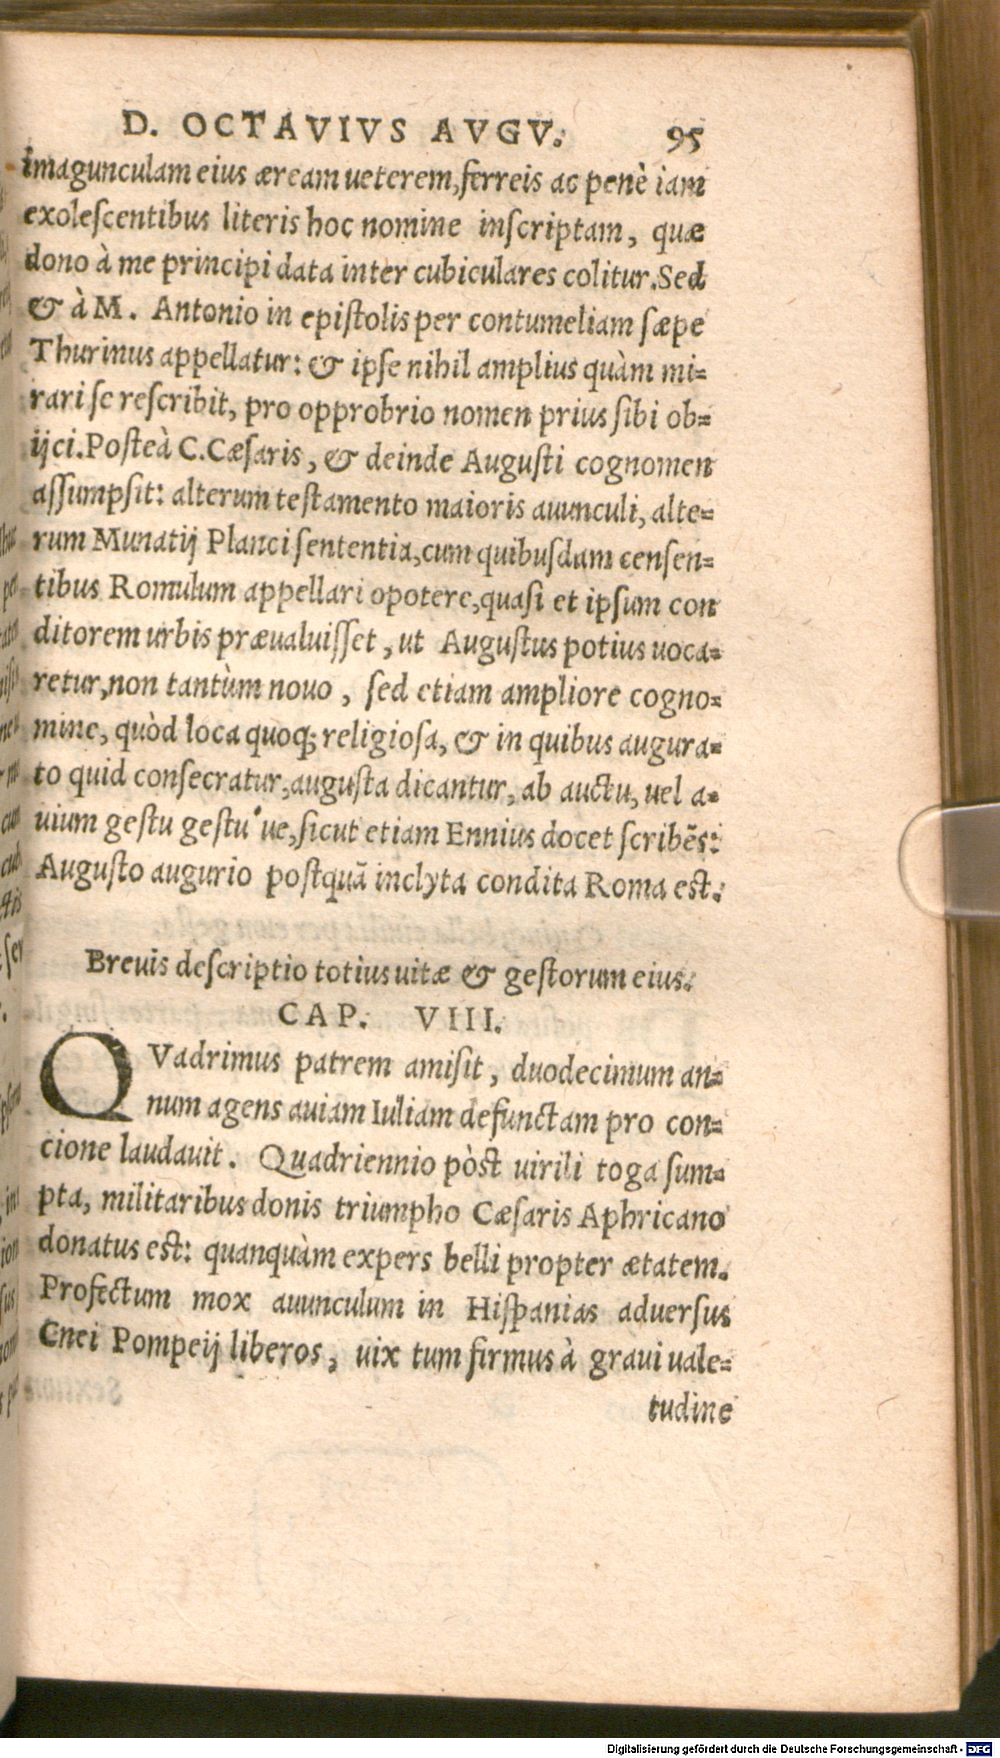 D. OCTAVIVS AVGV. 95
imagunculam eius æream ueterem, ferreis ac penè iam
exolescentibus literis hoc nomine inscriptam, quæ
dono à me principi data inter cubiculares colitur. Sed
& à M. Antonio in epistolis per contumeliam sæpe
Thurinus appellatur: & ipse nihil amplius quàm mi-
rari se rescribit, pro opprobrio nomen prius sibi ob-
ijci. Posteà C. Cæsaris, & deinde Augusti cognomen
assumpsit: alterum testamento maioris auunculi, alte-
rum Munatij Planci sententia, cum quibusdam censen-
tibus Romulum appellari opotere, quasi et ipsum con
ditorem urbis præualuisset, ut Augustus potius uoca-
retur, non tantùm nouo, sed etiam ampliore cogno-
mine, quòd loca quoq; religiosa, & in quibus augura-
to quid consecratur, augusta dicantur, ab auctu, uel a-
uium gestu gestu'ue, sicut etiam Ennius docet scribēs:
Augusto augurio postquā inclyta condita Roma est.
Breuis descriptio totius uitæ & gestorum eius.
CAP. VIII.
QVadrimus patrem amisit, duodecimum an-
num agens auiam Iuliam defunctam pro con-
cione laudauit. Quadriennio pòst uirili toga sum-
pta, militaribus donis triumpho Cæsaris Aphricano
donatus est: quanquàm expers belli propter ætatem.
Profectum mox auunculum in Hispanias aduersus
Cnei Pompeij liberos, uix tum firmus à graui uale-
tudine
Digitalisierung gefördert durch die Deutsche Forschungsgemeinschaft - DFG